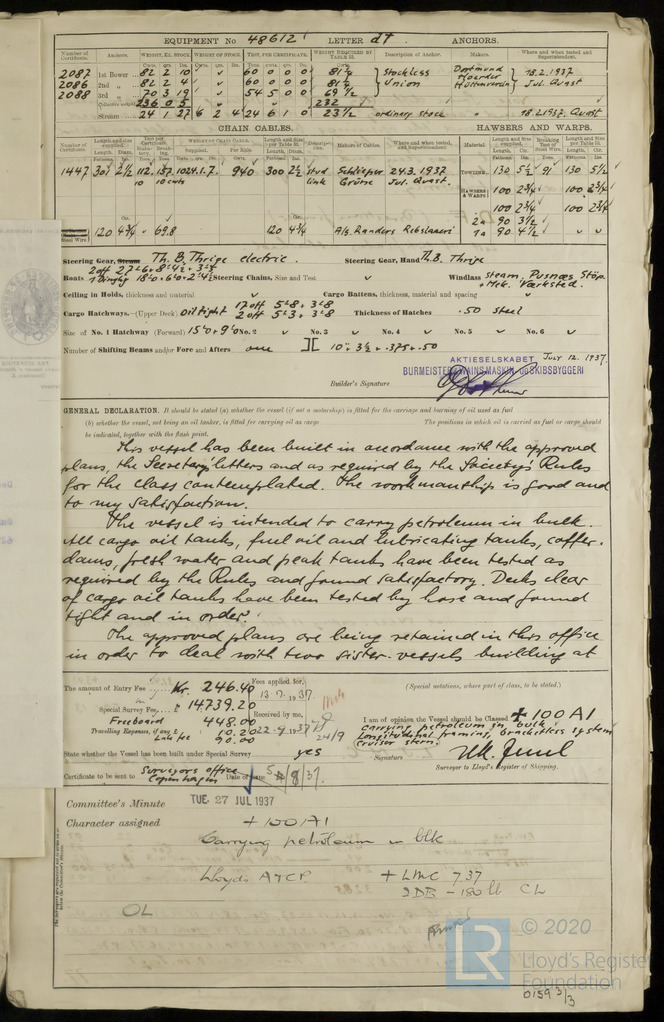 EQUIPMENT No 48612 LETTER d† ANCHORS.
Number of Certificate. Anchors. WEIGHT, EX. STOCK. WEIGHT OF STOCK. TEST, PER CERTIFICATE. WEIGHT REQUIRED BY TABLE 53. Description of Anchor. Makers. Where and when tested and Superintendent.
2087 1st Bower 82 2 10 60 0 0 0 81¼ Stockless Dortmund 18.2.1937
2086 2nd „ 82 2 4 60 0 0 0 81¼ Union Hoerder Jul. Quast
2088 3rd „ 70 3 19 54 5 0 0 69½ Hüttenverein
Collective weight 236 0 5 232
Stream 24 1 27 6 2 4 24 6 1 0 23½ ordinary stock 18.2.1937. Quast
CHAIN CABLES. HAWSERS AND WARPS.
1447 301 2½ 112. 157. 1024.1.7. 940 300 2½ stud link Schlieper 24.3.1937 TOWLINE 130 5½ 91 130 5½
10 10 cwts Grüne Jul. Quast.
HAWSERS & WARPS 100 2¾ 100 2¾
100 2¾ 100 2¾
2a 90 3½
Steel Wire 120 4¾ 69.8 120 4¾ A/S. Randers Rebslaaeri 1a 90 4½
Steering Gear, Steam Th. B. Thrige electric. Steering Gear, Hand Th. B. Thrige
Boats 2 off 27'6 × 8'4½ × 3'5
1 Dinghy 18'0 × 6'0 × 2'4½ Steering Chains, Size and Test Windlass Steam, Pusnæs Stöp. & Mek. Værksted.
Ceiling in Holds, thickness and material Cargo Battens, thickness, material and spacing
Cargo Hatchways.—(Upper Deck) Oiltight 17 off 5'8 × 3'8
2 off 5'3 × 3'8 Thickness of Hatches .50 Steel
Size of No. 1 Hatchway (Forward) 15'0 × 9'0 No. 2 No. 3 No. 4 No. 5 No. 6
Number of Shifting Beams and/or Fore and Afters one 10" × 3½ × .375 × .50
AKTIESELSKABET July 12. 1937.
BURMEISTER & WAINS MASKIN- OG SKIBSBYGGERI
Builder's Signature
GENERAL DECLARATION. It should be stated (a) whether the vessel (if not a motorship) is fitted for the carriage and burning of oil used as fuel
(b) whether the vessel, not being an oil tanker, is fitted for carrying oil as cargo The positions in which oil is carried as fuel or cargo should
be indicated, together with the flash point.
This vessel has been built in accordance with the approved
plans, the Secretary's letters and as required by the Society's Rules
for the class contemplated. The workmanship is good and
to my satisfaction.
The vessel is intended to carry petroleum in bulk.
All cargo oil tanks, fuel oil and lubricating tanks, coffer-
dams, fresh water and peak tanks have been tested as
required by the Rules and found satisfactory. Decks clear
of cargo oil tanks have been tested by hose and found
tight and in order.
The approved plans are being retained in this office
in order to deal with two sister-vessels building at
The amount of Entry Fee Kr. 246.40 Fees applied for, (Special notations, where part of class, to be stated.)
Special Survey Fee, 14739.20 13.7.1937.
Freeboard 448.00 Received by me, I am of opinion the Vessel should be Classed + 100 A1
Travelling Expenses, if any 10.20 22-9-1937 carrying petroleum in bulk.
Late fee 90.00 24/9 Longitudinal framing, bracketless system
Cruiser stern.
State whether the Vessel has been built under Special Survey yes Signature
Surveyor to Lloyd's Register of Shipping.
Certificate to be sent to Surveyors office Copenhagen Date of issue 5/8/37.
Committee's Minute TUE. 27 JUL 1937
Character assigned + 100 A1
Carrying petroleum in blk
Lloyds A & CP + LMC 7 37
2DB - 180 lb CL
OL
LR © 2020
Lloyd's Register
Foundation
0159 3/3